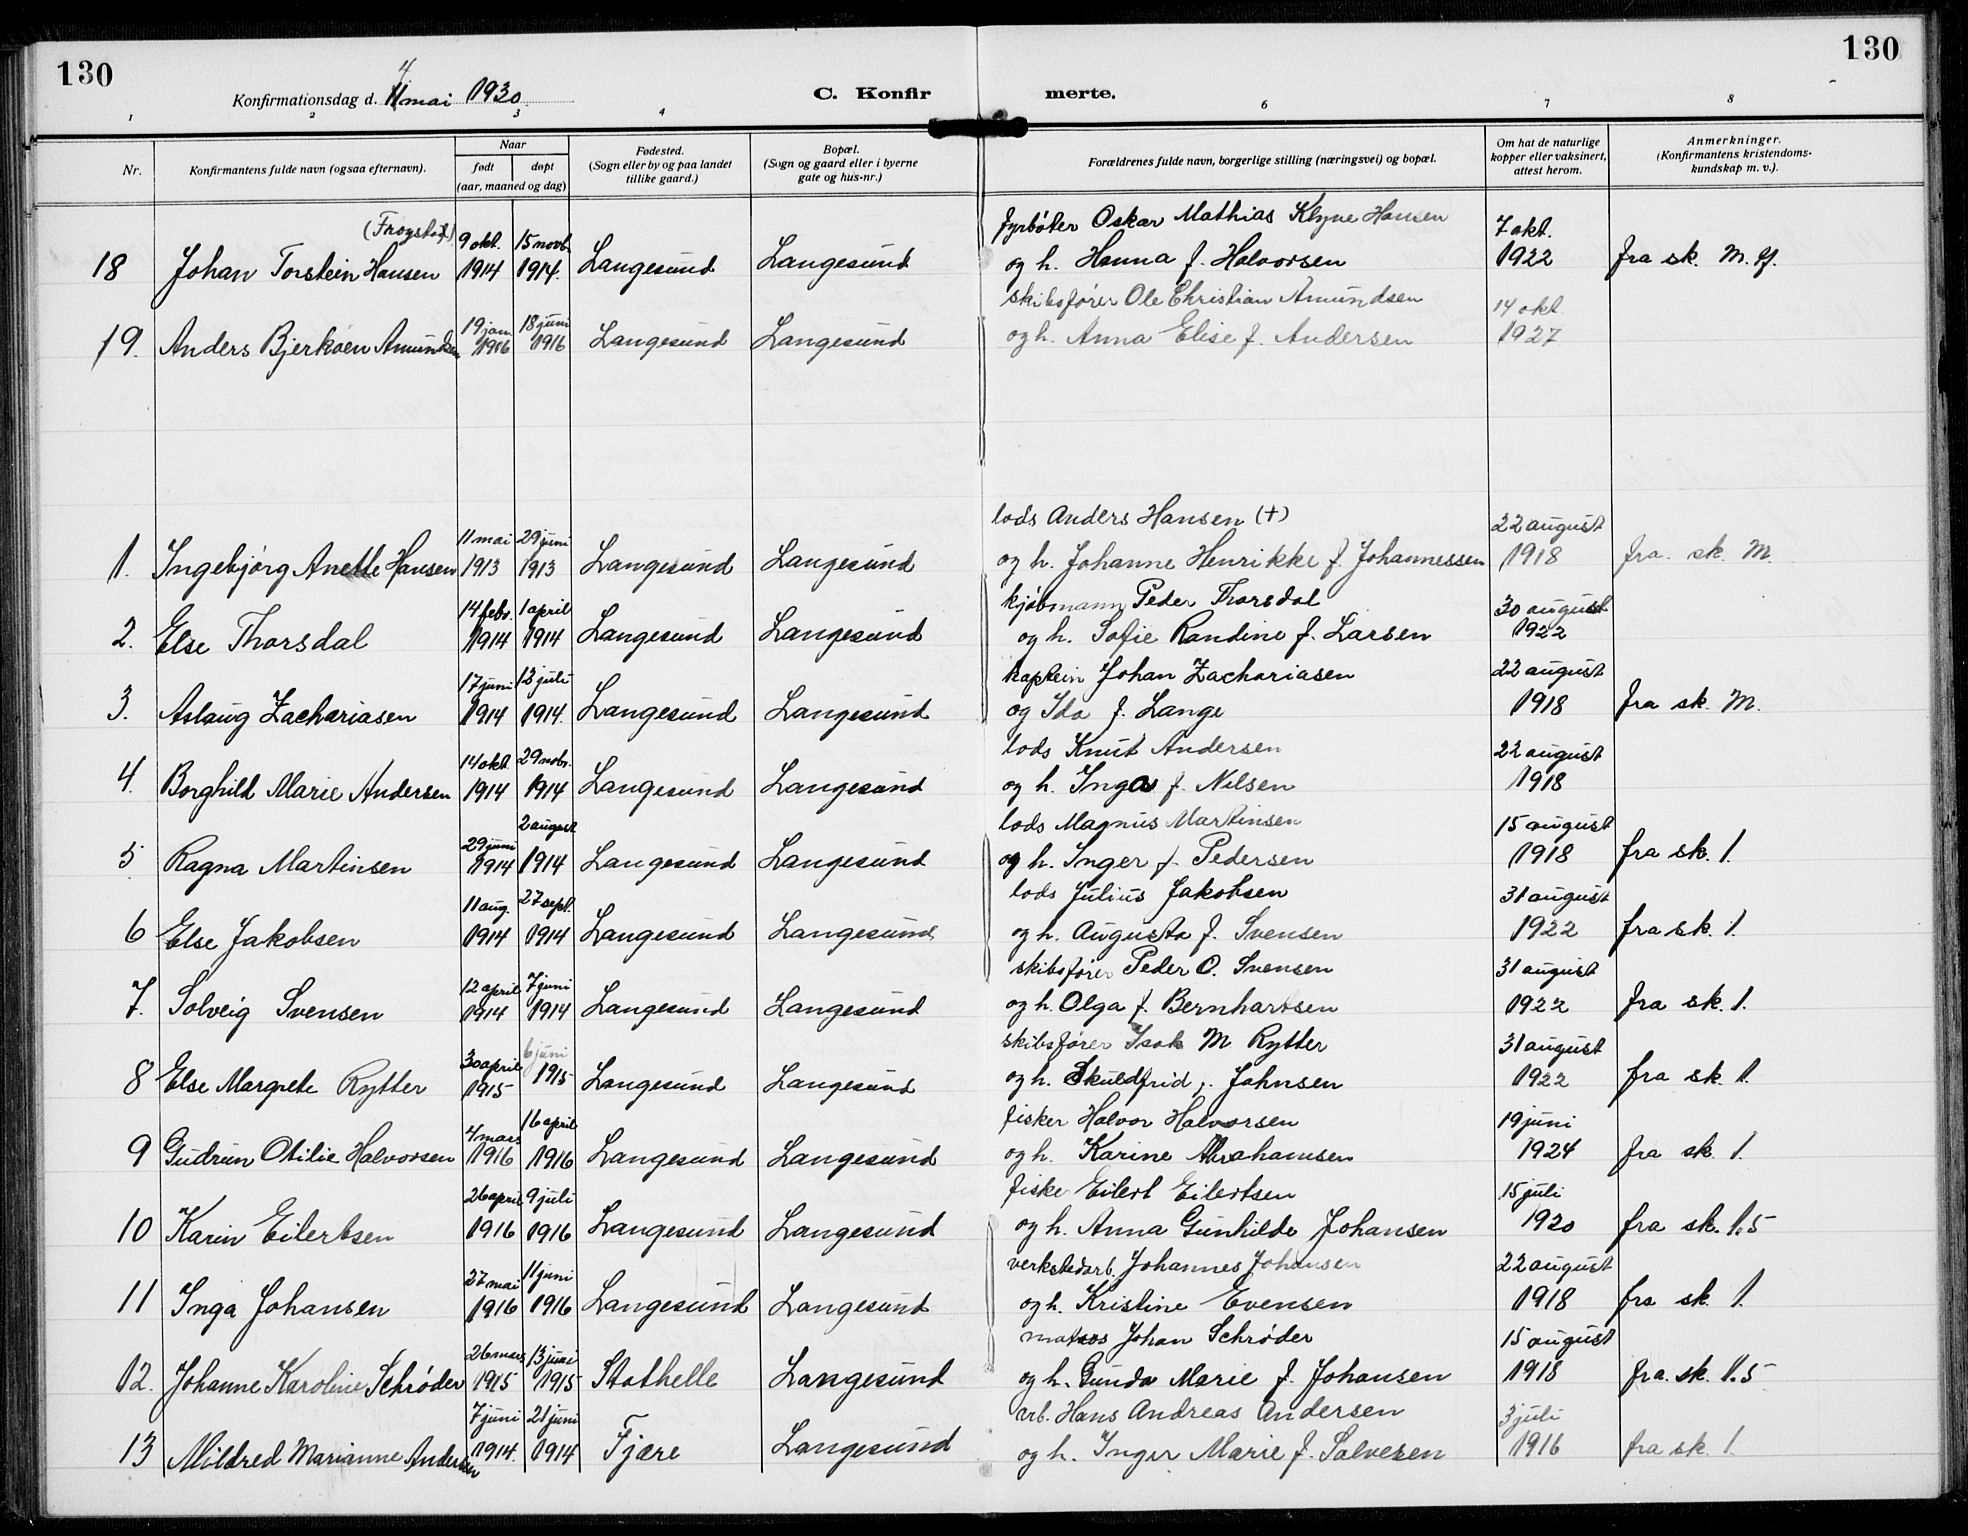 130
Konfirmationsdag d. 11 mai 1930
4
C. Konfir
merte.
130
1 2 3 4 6 7 8
Nr.
Konfirmantens fulde navn (ogsaa efternavn).
Naar
født døpt
(aar, maaned og dag)
Fødested.
(Sogn eller by og paa landet
tillike gaard.)
Bopæl.
(Sogn og gaard eller i byerne
gate og hus-nr.)
Forældrenes fulde navn, borgerlige stilling (næringsvei) og bopæl.
Om hat de naturlige
kopper eller vaksinert,
attest herom.
Anmerkninger.
(Konfirmantens kristendoms-
kundskap m. v.).
9 okt. 15 novb. fyrbøter Oskar Mathias Klyve Hansen 7 okt.
18 Johan Torstein Hansen 1914 1914. Langesund Langesund og h. Hanna f. Halvorsen 1922 fra sk. M.
19 jan. 18 juni skibsfører Ole Christian Amundsen 14 okt.
19. Anders Bjerkøen Amundsen 1916 1916 Langesund Langesund og h. Anna Elise f. Andersen 1927
11 mai 29 juni lods Anders Hansen (+) 22 august
1. Ingebjørg Anette Hansen 1913 1913 Langesund Langesund og h. Johanne Henrikke f. Johannessen 1918 fra. sk. M.
14 febr. 1 april kjøbmann Peder Thorsdal 30 august
2. Else Thorsdal 1914 1914 Langesund Langesund og h. Sofie Randine f. Larsen 1922
17 juni 12 juli kaptein Johan Zachariasen 22 august
3. Aslaug Zachariasen 1914 1914. Langesund Langesund og Ida f. Lange 1918 fra sk. M.
14 okt. 29 nobr. lods Knut Andersen 22 august
4. Borghild Marie Andersen 1914 1914 Langesund Langesund og h. Inga f. Nilsen 1918
29 juni 2 august lods Magnus Martinsen 15 august
5 Ragna Martinsen 1914 1914 Langesund Langesund og h. Inger f. Pedersen 1918 fra sk. 1.
11 aug. 27 sept. lods Julius Jakobsen 31 august
6 Else Jakobsen 1914 1914 Langesund Langesund og h. Augusta f. Svensen 1922 fra sk. 1.
12 april 7 juni skibsfører Peder O. Svensen 31 august
7. Solveig Svensen 1914 1914 Langesund Langesund og h. Olga f. Bernhartsen 1922 fra sk. 1.
30 april 6 juni skibsfører Isak M Rytter 31 august
8 Else Margrete Rytter 1915 1915 Langesund Langesund og h. Skuldfrid f. Johnsen 1922 fra sk. 1.
4 mars 16 april fisker Halvor Halvorsen 19 juni
9 Gudrun Otilie Halvorsen 1916 1916 Langesund Langesund og h. Karine Abrahamsen 1924 fra sk 1.
26 april 9 juli fiske Eilert Eilertsen 15 juli
10 Karin Eilertsen 1916 1916 Langesund Langesund og h. Anna Gunhilde Johansen 1920 fra sk. 1.5
27 mai 11 juni verkstedarb. Johannes Johansen 22 august
11 Inga Johansen 1916 1916 Langesund Langesund og h. Kristine Evensen 1918 fra sk. 1.
26 mars 13 juni matros Johan Schrøder 15 august
12. Johanne Karoline Schrøder 1915 1915 Stathelle Langesund og h. Gunda Marie f. Johansen 1918 fra. sk. 1.5
7 juni 21 juni arb. Hans Andreas Andersen 3 juli
13 Mildred Marianne Andersen 1914. 1914 Fjære Langesund og h. Inger Marie f. Salvesen 1916 fra sk. 1.